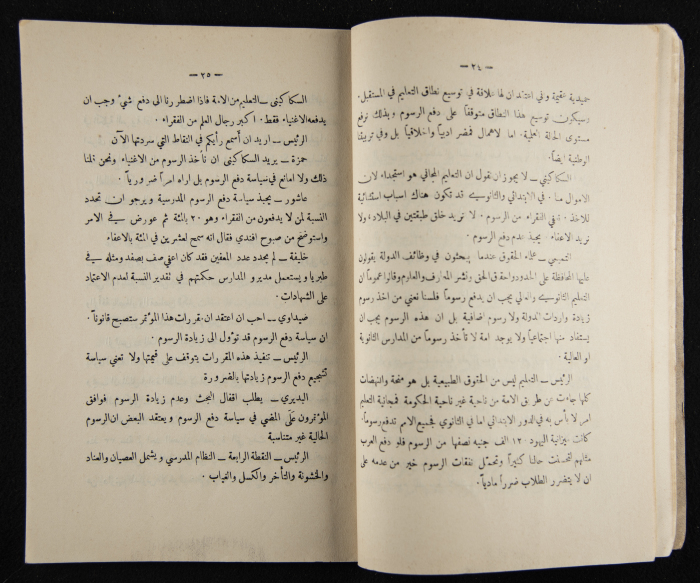 — ٢٤ —
جديدية عقيمة وفي اعتقادي ان لها علاقة في توسيع نطاق التعليم في المستقبل.
وسيكون توسيع هذا النطاق متوقفاً على دفع الرسوم وبذلك نرفع
مستوى الحالة العلمية. اما الاهمال فمضر ادبياً واخلاقياً بل وفي تربيتنا
الوطنية ايضاً.
السكاكيني — لا يجوز ان نقول ان التعليم المجاني هو استجداء لان
الاموال منا. في الابتدائي والثانوي قد تكون هناك اسباب استثنائية
للاخذ. نعفي الفقراء من الرسوم. لا نريد خلق طبقتين في البلاد ولا
نريد الاعفاء يحبذ عدم دفع الرسوم.
التميمي — علماء الحقوق عندما يبحثون في وظائف الدولة يقولون
عليها المحافظة على الحدود واحقاق الحق ونشر المعارف والعلوم وقالوا عموماً ان
التعليم الثانوي والعالي يجب ان يدفع رسوماً. فلسنا نعني من اخذ رسوم
زيادة واردات الدولة ولا رسوم اضافية بل ان هذه الرسوم يجب ان
يستفاد منها اجتماعياً ولا يوجد امة لا تأخذ رسوماً من المدارس الثانوية
او العالية.
الرئيس — التعليم ليس من الحقوق الطبيعية بل هو منحة والنهضات
كلها جاءت عن طريق الامة من ناحية غير ناحية الحكومة. فمجانية التعليم
امر لا بأس به في الدور الابتدائي اما في الثانوي فجميع الامم تدفع رسوماً.
كانت ميزانية اليهود ١٢٠ الف جنيه نصفها من الرسوم فلو دفع العرب
مثلهم لتحسنت حالنا كثيراً وتحمل نفقات الرسوم خير من عدمه على
ان لا يتضرر الطلاب ضرراً مادياً.
— ٢٥ —
السكاكيني — التعليم من الامة فاذا اضطررنا الى دفع شيء وجب ان
يدفعه الاغنياء فقط. اكبر رجال العلم من الفقراء.
الرئيس — اريد ان أسمع رأيكم في النقاط التي سردتها الآن
حمزة — يريد السكاكيني ان نأخذ الرسوم من الاغنياء ونحن قلنا
ذلك ولا امانع في سياسة دفع الرسوم بل اراه امراً ضرورياً.
عاشور — يحبذ سياسة دفع الرسوم المدرسية ويرجو ان تحدد
النسبة لمن لا يدفعون من الفقراء وهو ٢٠ بالمئة ثم عورض في الامر
واستوضح من صبوح افندي فقال انه سمح لعشرين في المئة بالاعفاء
خليفة — لم يحدد عدد المعفين فقد كان اعفي صف بصفد ومثله في
طبريا ويستعمل مديرو المدارس حكمتهم في تقدير النسبة لعدم الاعتماد
على الشهادات.
صيداوي — احب ان اعتقد ان مقررات هذا المؤتمر ستصبح قانوناً.
ان سياسة دفع الرسوم قد تؤول الى زيادة الرسوم.
الرئيس — تنفيذ هذه المقررات يتوقف على قيمتها ولا تعني سياسة
تشجيع دفع الرسوم زيادتها بالضرورة
البديري — يطلب اقفال البحث وعدم زيادة الرسوم فوافق
المؤتمرون عَلَى المضي في سياسة دفع الرسوم ويعتقد البعض ان الرسوم
الحالية غير متناسبة
الرئيس — النقطة الرابعة — النظام المدرسي ويشمل العصيان والعناد
والخشونة والتأخر والكسل والغياب.